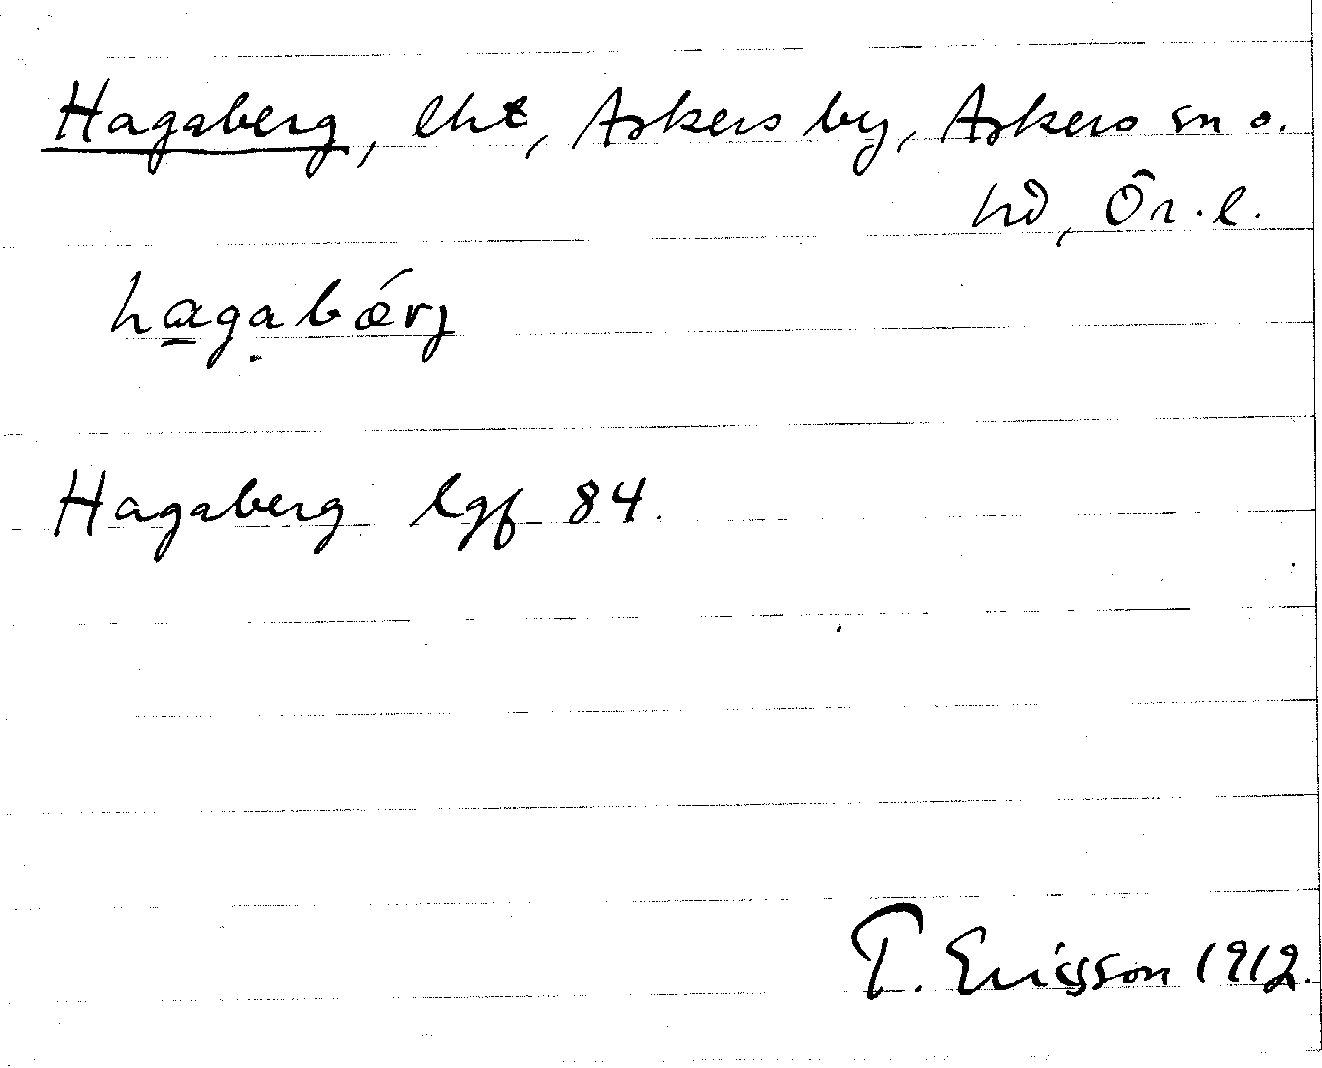 Hagaberg, lht, Askers by, Askers sn o.
hd, Ör. l.
hagabǽrj
Hagaberg lgf 84.
T. Ericsson 1912.